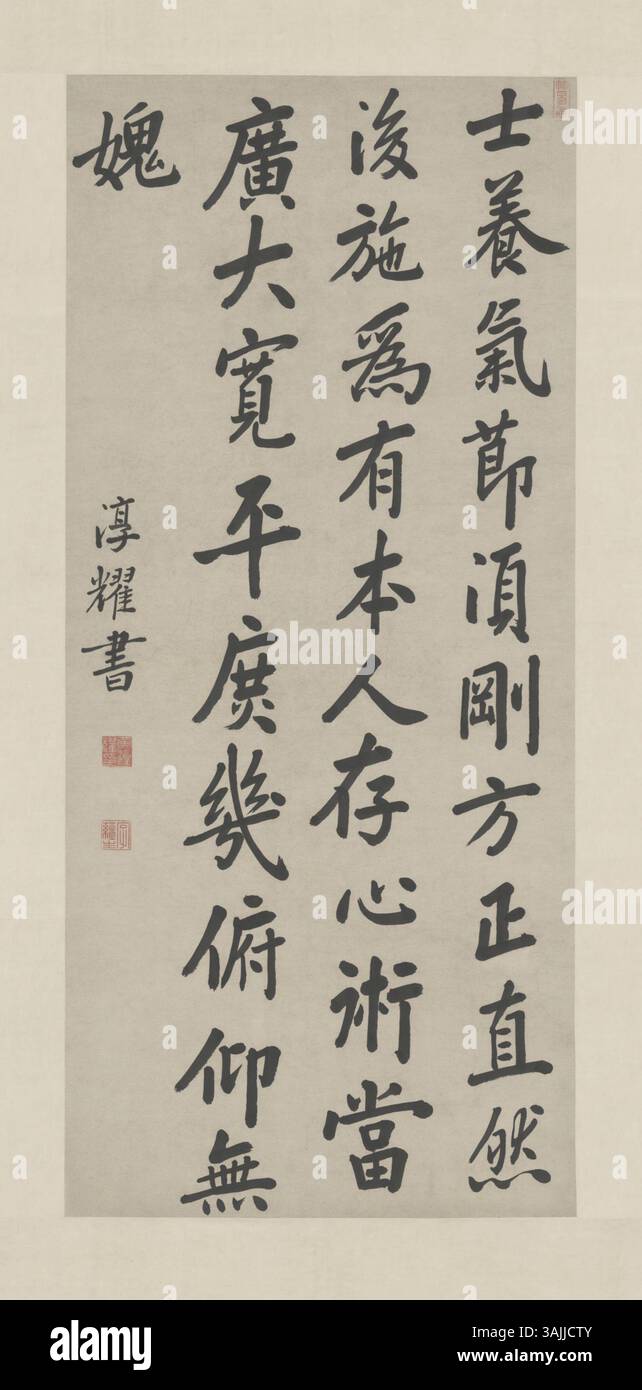 士養氣節須剛方正直然
後施爲有本人存心術當
廣大寬平庻幾俯仰無
媿
淳耀書
alamy
Image ID: 3AJJCTY
www.alamy.com